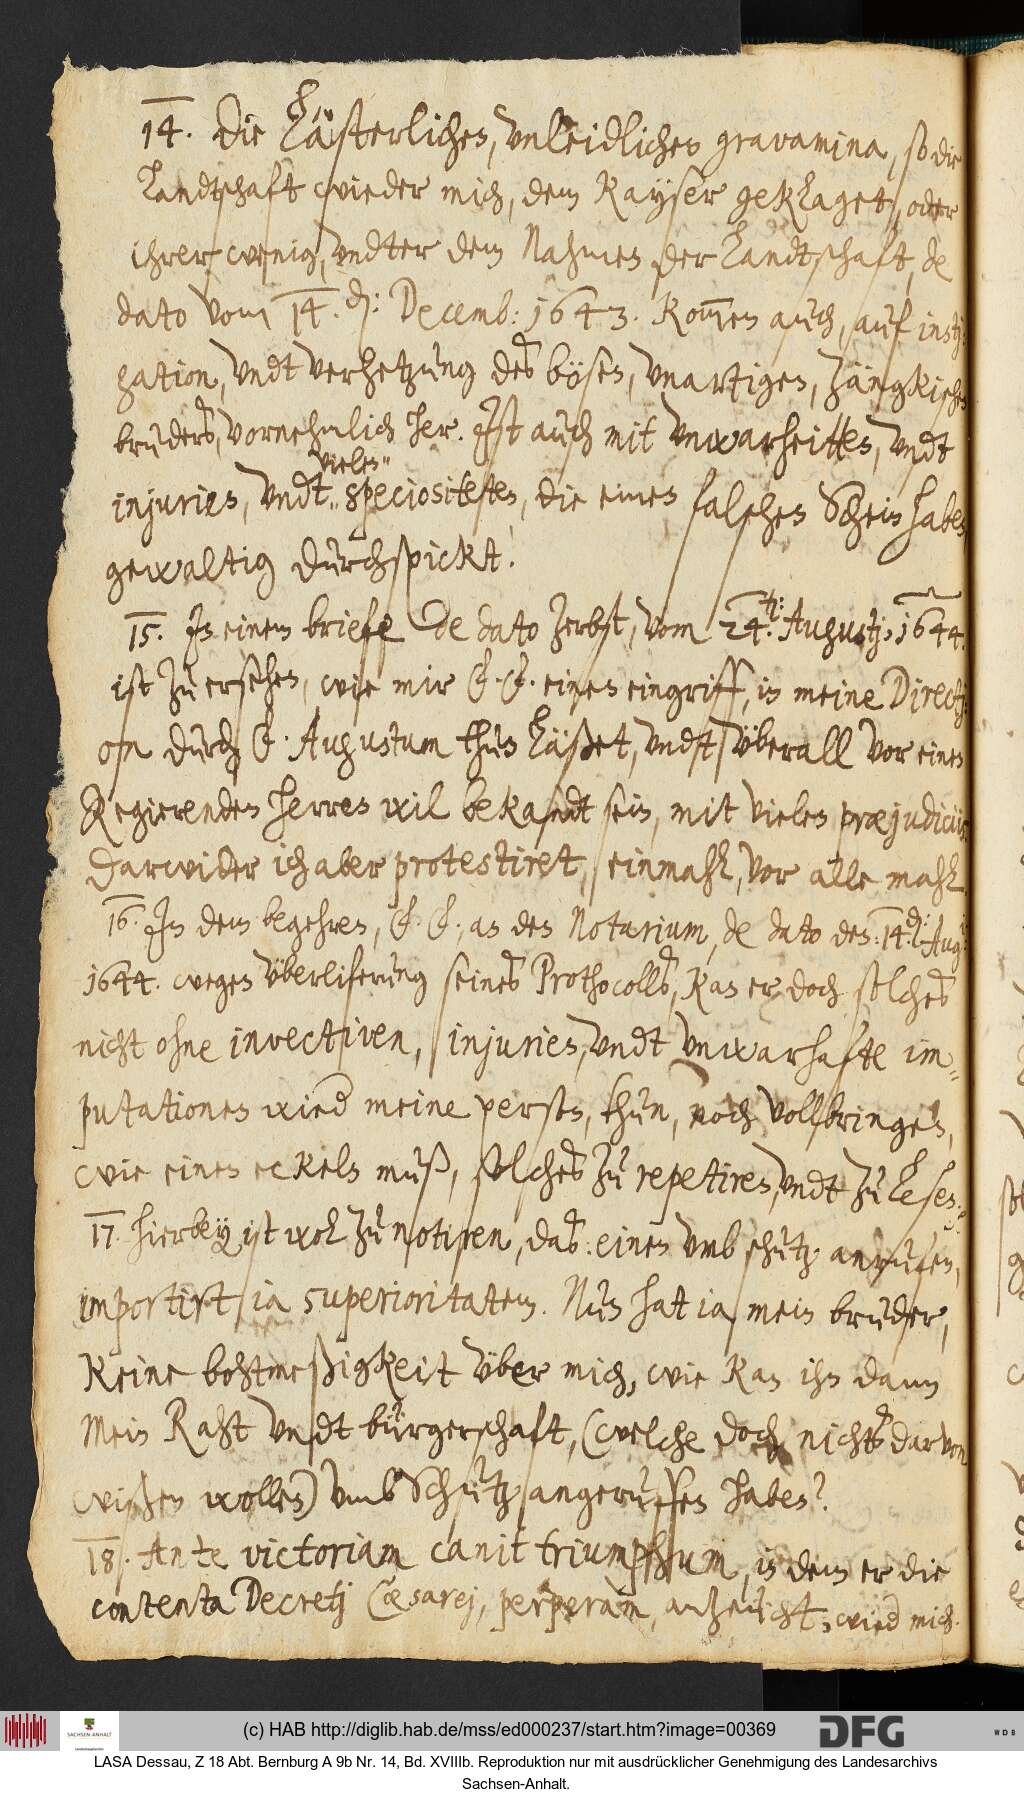 14. Die Lästerlichen, vnleidlichen gravamina, so die
Landtschaft wieder mich, dem Kayser geklaget, oder
ihrer wenig, vndter dem Nahmen der Landtschaft, de
dato vom 14. d: Decemb: 1643. Kom̅en auch, auf insti¬
gation, vndt verhetzung des bösen, vnartigen, zängkischen
bruders, vornehmlich her. Ist auch mit vnwarheitten, vndt
vielen
injurien, vndt speciositeten, die einen falschen Schein haben
gewaltig durchspickt.
15. In einem brieffe de dato Zerbst, vom 24. Augustj, 1644.
ist zu ersehen, wie mir E. E. einen eingriff, in meine Directj¬
on durch E. Augustum thun läßet, vndt überall vor einen
Regierenden Herren wil bekandt sein, mit vielen præjudiciis
darwieder ich aber protestiret, einmahl, vor alle mahl.
16. In dem begehren, E. E., an den Notarium, de dato den: 14. d: Aug:
1644. wegen überliferung seines Prothocolls, kan er doch solches
nicht ohne invectiven, injurien, vndt vnwarhafte im¬
putationes wied meine person, thun, noch vollbringen,
wie einen eckeln muß, solches zu repetiren, vndt zu lesen.
17. Hierbey ist wol zu notiren, das: einen vmb schutz anrufen,
importirt ia superioritatem. Nun hat ia, mein bruder,
Keine bohtmeßigkeit über mich, wie kan ihn dann
Mein Raht vndt bürgerschaft, (welche doch nichts darvon
wißen wollen) vmb Schutz angeruffen haben?
18. Ante victoriam canit triumphum, in dem er die
contenta Decretj Cæsarej, perperam, anzeucht, wied mich.
(c) HAB http://diglib.hab.de/mss/ed000237/start.htm?image=00369
SACHSEN-ANHALT
DFG
WDB
LASA Dessau, Z 18 Abt. Bernburg A 9b Nr. 14, Bd. XVIIIb. Reproduktion nur mit ausdrücklicher Genehmigung des Landesarchivs
Sachsen-Anhalt.